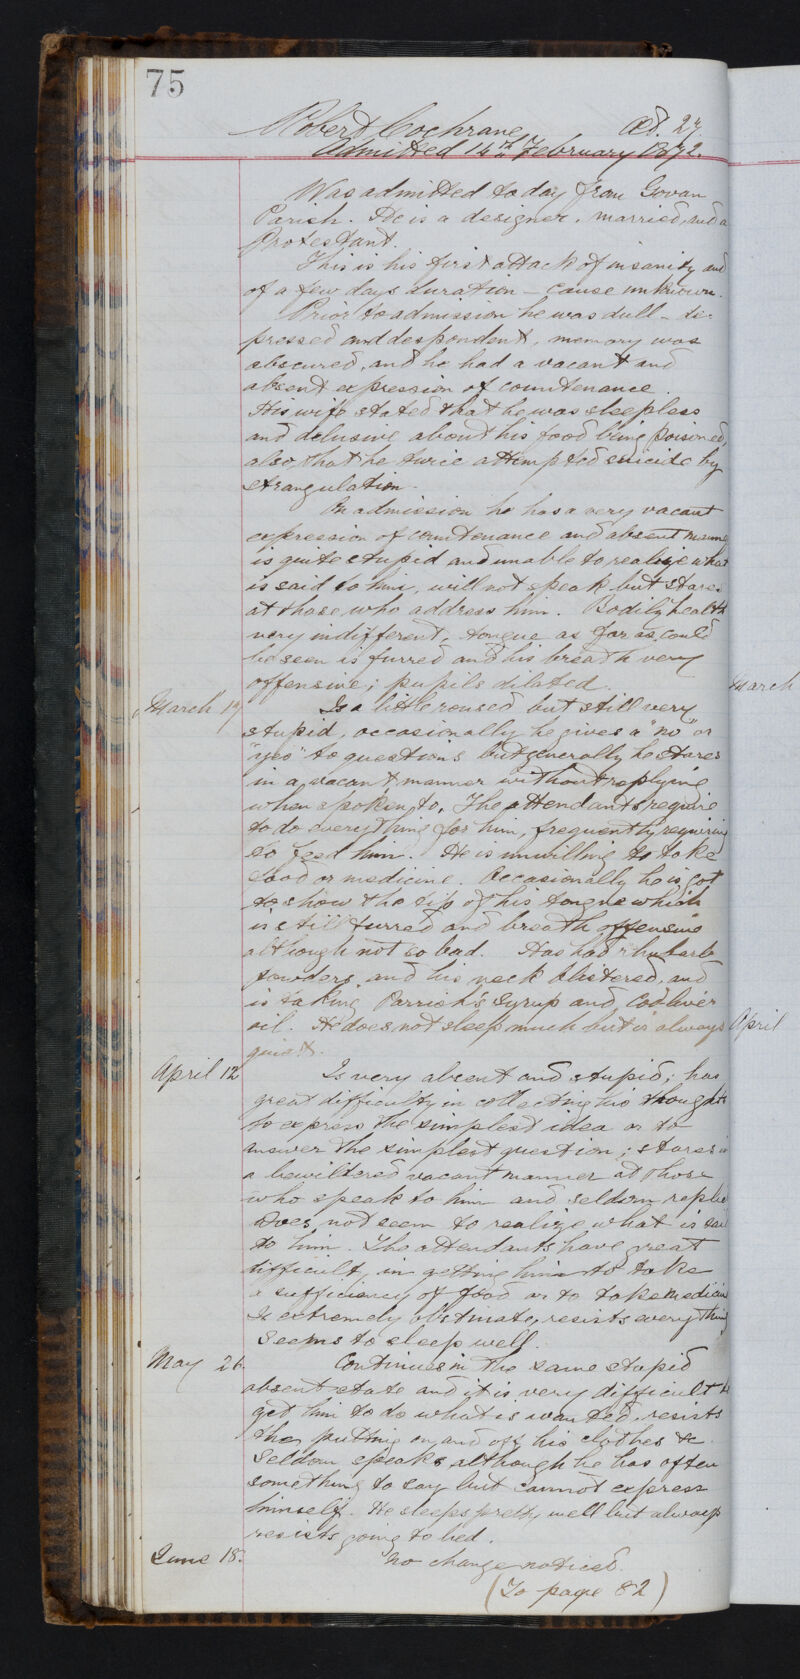 75
Robert Cochrane Æt. 27.
Admitted 14th February 1872.
Was admitted to day from Govan
Parish. He is a designer, married, and a
Protestant.
This is his first attack of insanity and
of a few days duration – cause unknown.
Prior to admission he was dull – de-
pressed and despondent, memory was
obscured, and he had a vacant and
absent expression of countenance.
His wife stated that he was sleepless
and delusive about his food being poisoned,
also, that he twice attempted suicide by
strangulation.
On admission he has a very vacant
expression of countenance and absent manner
is quite stupid and unable to realize what
is said to him, will not speak but stares
at those who address him. Bodily health
very indifferent, tongue as far as could
be seen is furred and his breath very
offensive; pupils dilated.
March
March 17 Is a little roused but still very
stupid, occasionally he gives a "no" or
"yes" to questions but generally he stares
in a vacant manner without replying
when spoken to. The attendants require
to do everything for him, frequently requiring
to feed him. He is unwilling to take
food or medicine. Occasionally he is got
to show the tip of his tongue which
is still furred and breath offensive
although not so bad. Has had rhubarb
powders, and his neck blistered, and
is taking Parrish's Syrup and Cod liver
oil. He does not sleep much but is always
April
quiet.
April 12 Is very absent and stupid; has
great difficulty in collecting his thoughts
to express the simplest idea or to
answer the simplest question; stares in
a bewildered vacant manner at those
who speak to him and seldom replies
Does not seem to realize what is said
to him. The attendants have great
difficulty in getting him to take
a sufficiency of food or to take medicine
Is extremely obstinate, resists everything
Seems to sleep well.
May 26. Continues in the same stupid
absent state and it is very difficult to
get him to do what is wanted, resists
the putting on and off his clothes &c.
Seldom speaks although he has often
something to say but cannot express
himself. He sleeps pretty well but always
resists going to bed.
June 18. No change noticed.
(To page 82)